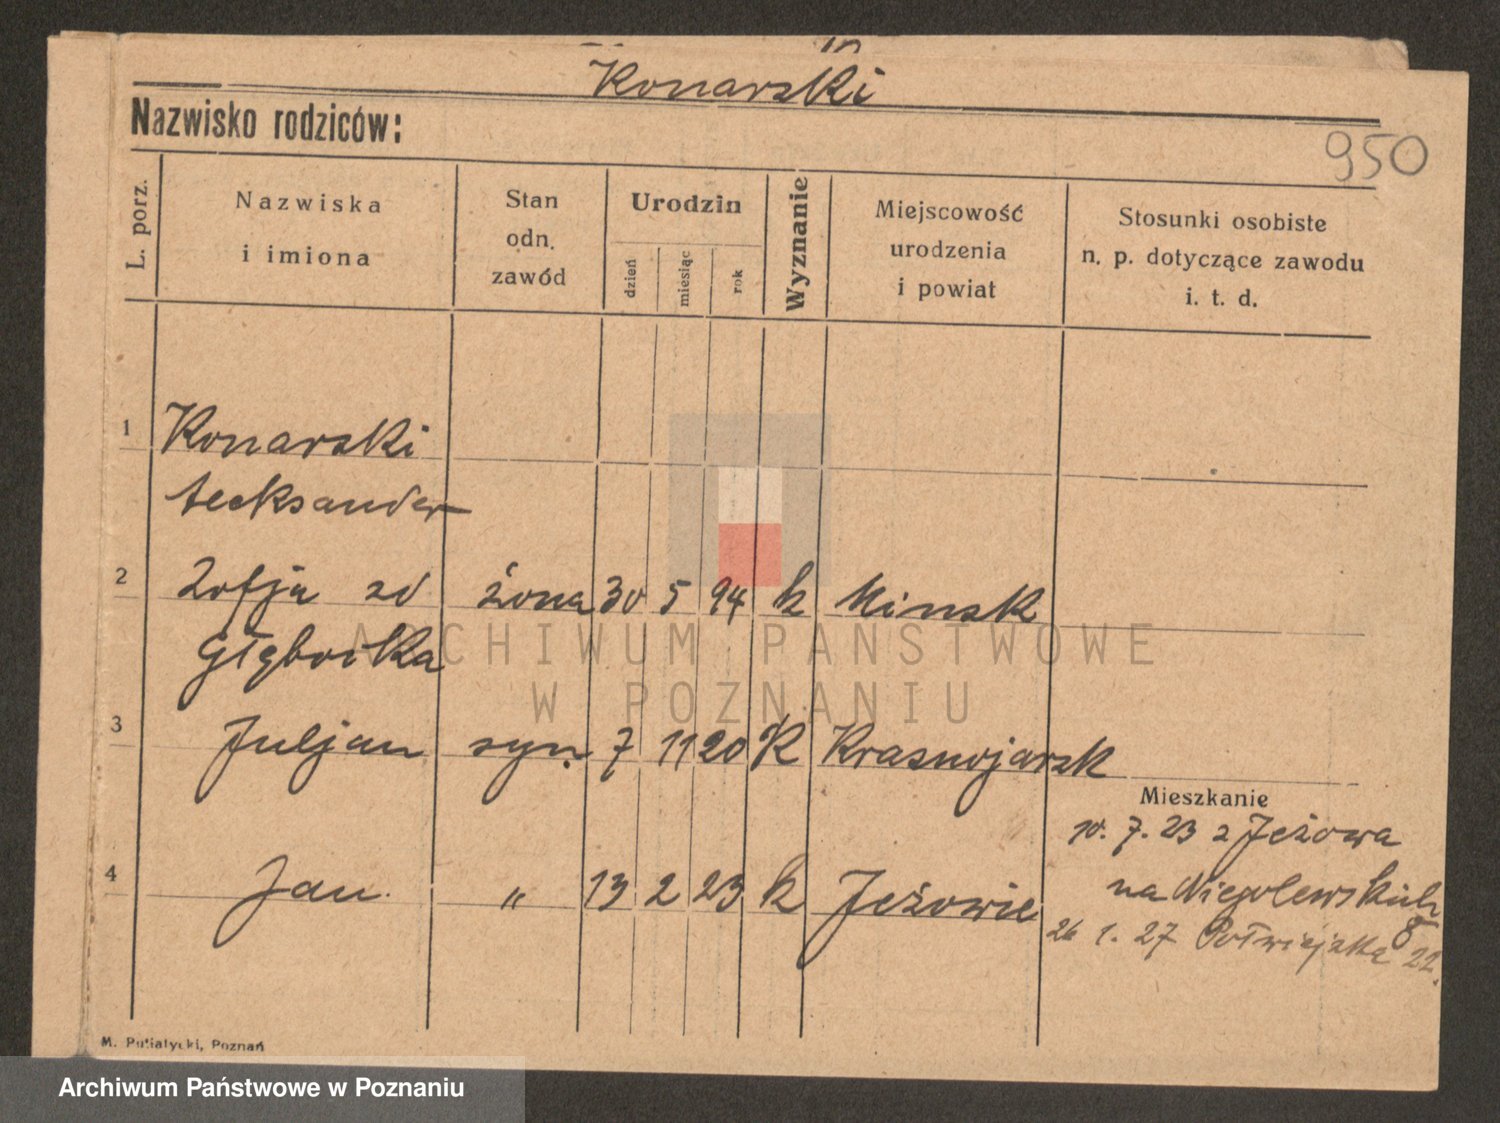 Konarski
Nazwisko rodziców:
950
L. porz.
Nazwiska
i imiona
Stan
odn.
zawód
Urodzin
dzień
miesiąc
rok
Wyznanie
Miejscowość
urodzenia
i powiat
Stosunki osobiste
n. p. dotyczące zawodu
i. t. d.
1 Konarski
Aleksander
2 Zofja zd żona 30 5 94 k Minsk
Głęboćka
3 Juljan syn 7 11 20 K Krasnojarsk
Mieszkanie
10. 7. 23 z Jeżowa
4 Jan. " 13 2 23 k Jeżowie
na Niegolewskich 8
26 1. 27 Półwiejska 22.
M. Putiatycki, Poznań
ARCHIWUM PAŃSTWOWE
W POZNANIU
Archiwum Państwowe w Poznaniu